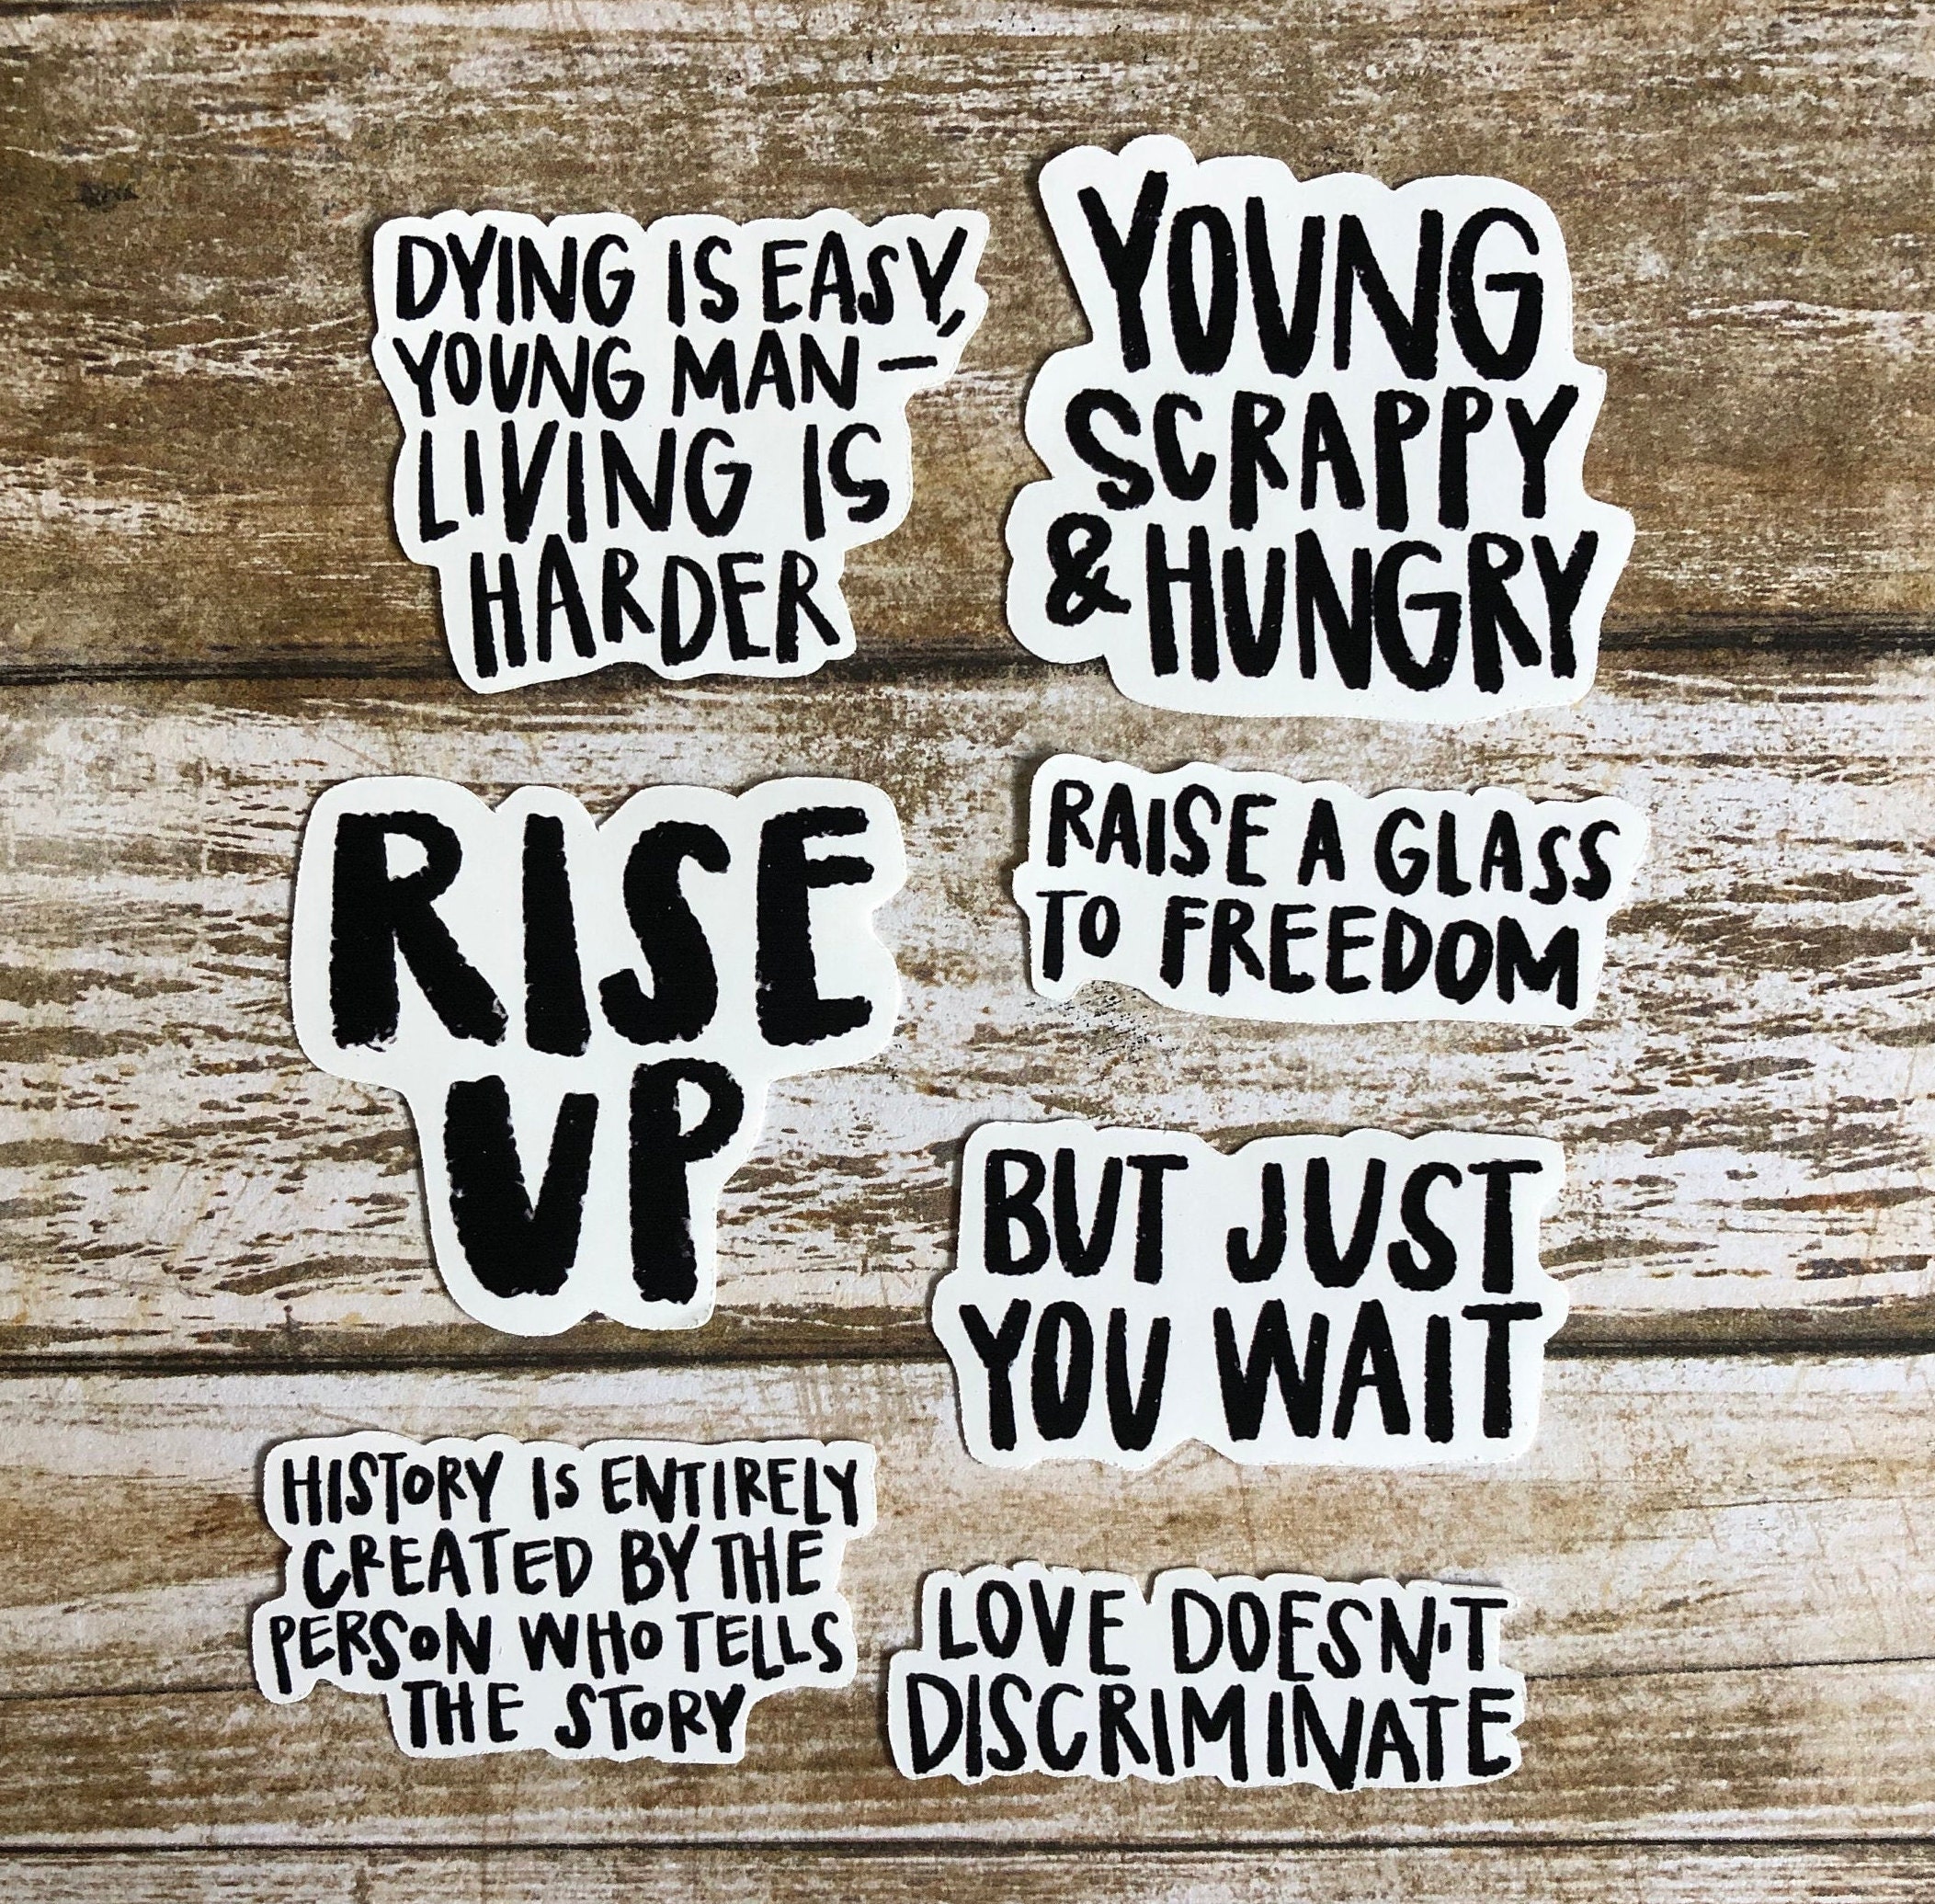 DYING IS EASY,
YOUNG MAN —
LIVING IS
HARDER
YOUNG
SCRAPPY
& HUNGRY
RISE
UP
RAISE A GLASS
TO FREEDOM
BUT JUST
YOU WAIT
HISTORY IS ENTIRELY
CREATED BY THE
PERSON WHO TELLS
THE STORY
LOVE DOESN'T
DISCRIMINATE